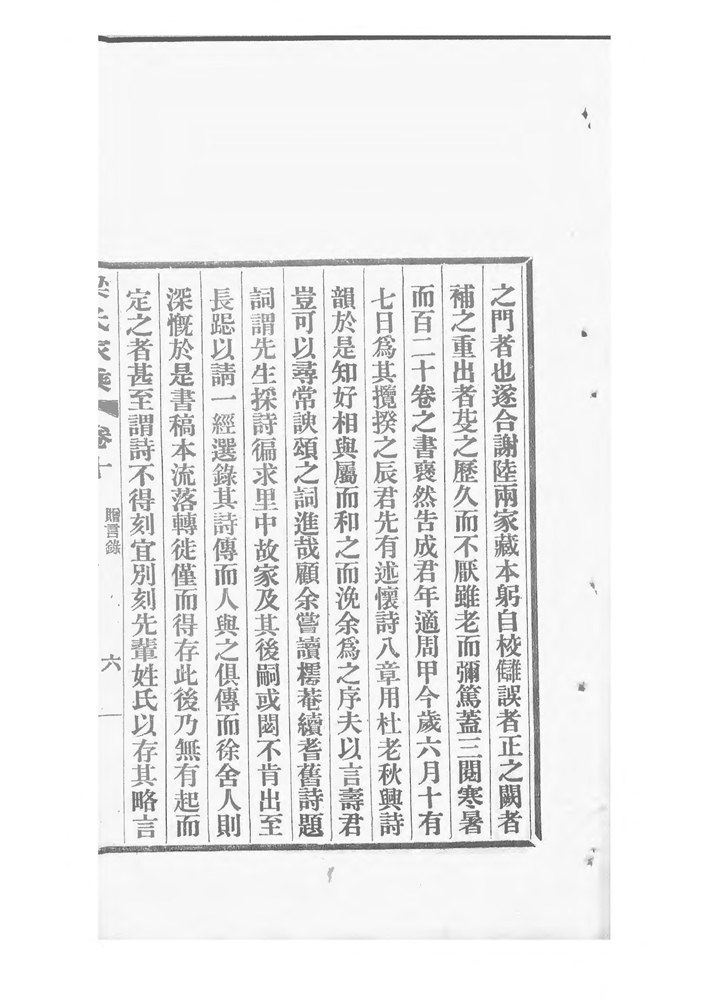 之門者也遂合謝陸兩家藏本躬自校讎誤者正之闕者
補之重出者芟之歷久而不厭雖老而彌篤蓋三閱寒暑
而百二十卷之書裒然吿成君年適周甲今歲六月十有
七日爲其攬揆之辰君先有述懷詩八章用杜老秋興詩
韻於是知好相與屬而和之而浼余爲之序夫以言壽君
豈可以尋常諛頌之詞進哉顧余嘗讀樗菴續耆舊詩題
詞謂先生採詩徧求里中故家及其後嗣或閟不肯出至
長跽以請一經選錄其詩傳而人與之俱傳而徐舍人則
深慨於是書稿本流落轉徙僅而得存此後乃無有起而
定之者甚至謂詩不得刻宜別刻先輩姓氏以存其略言
梁氏家乘 卷十 贈言錄 六